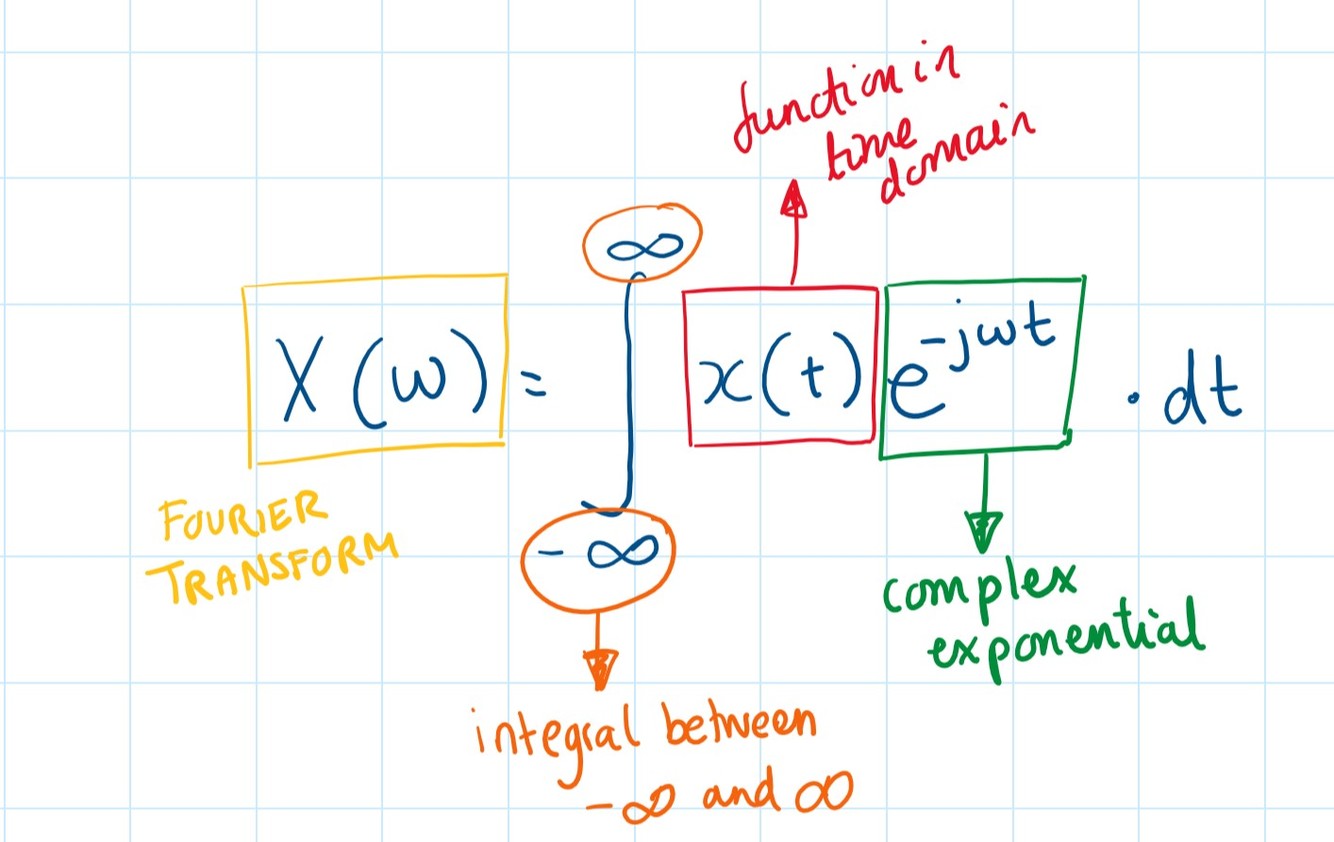 function in
time
domain
∞
X(ω) = ∫ x(t) e^-jωt . dt
-∞
FOURIER
TRANSFORM
complex
exponential
integral between
-∞ and ∞